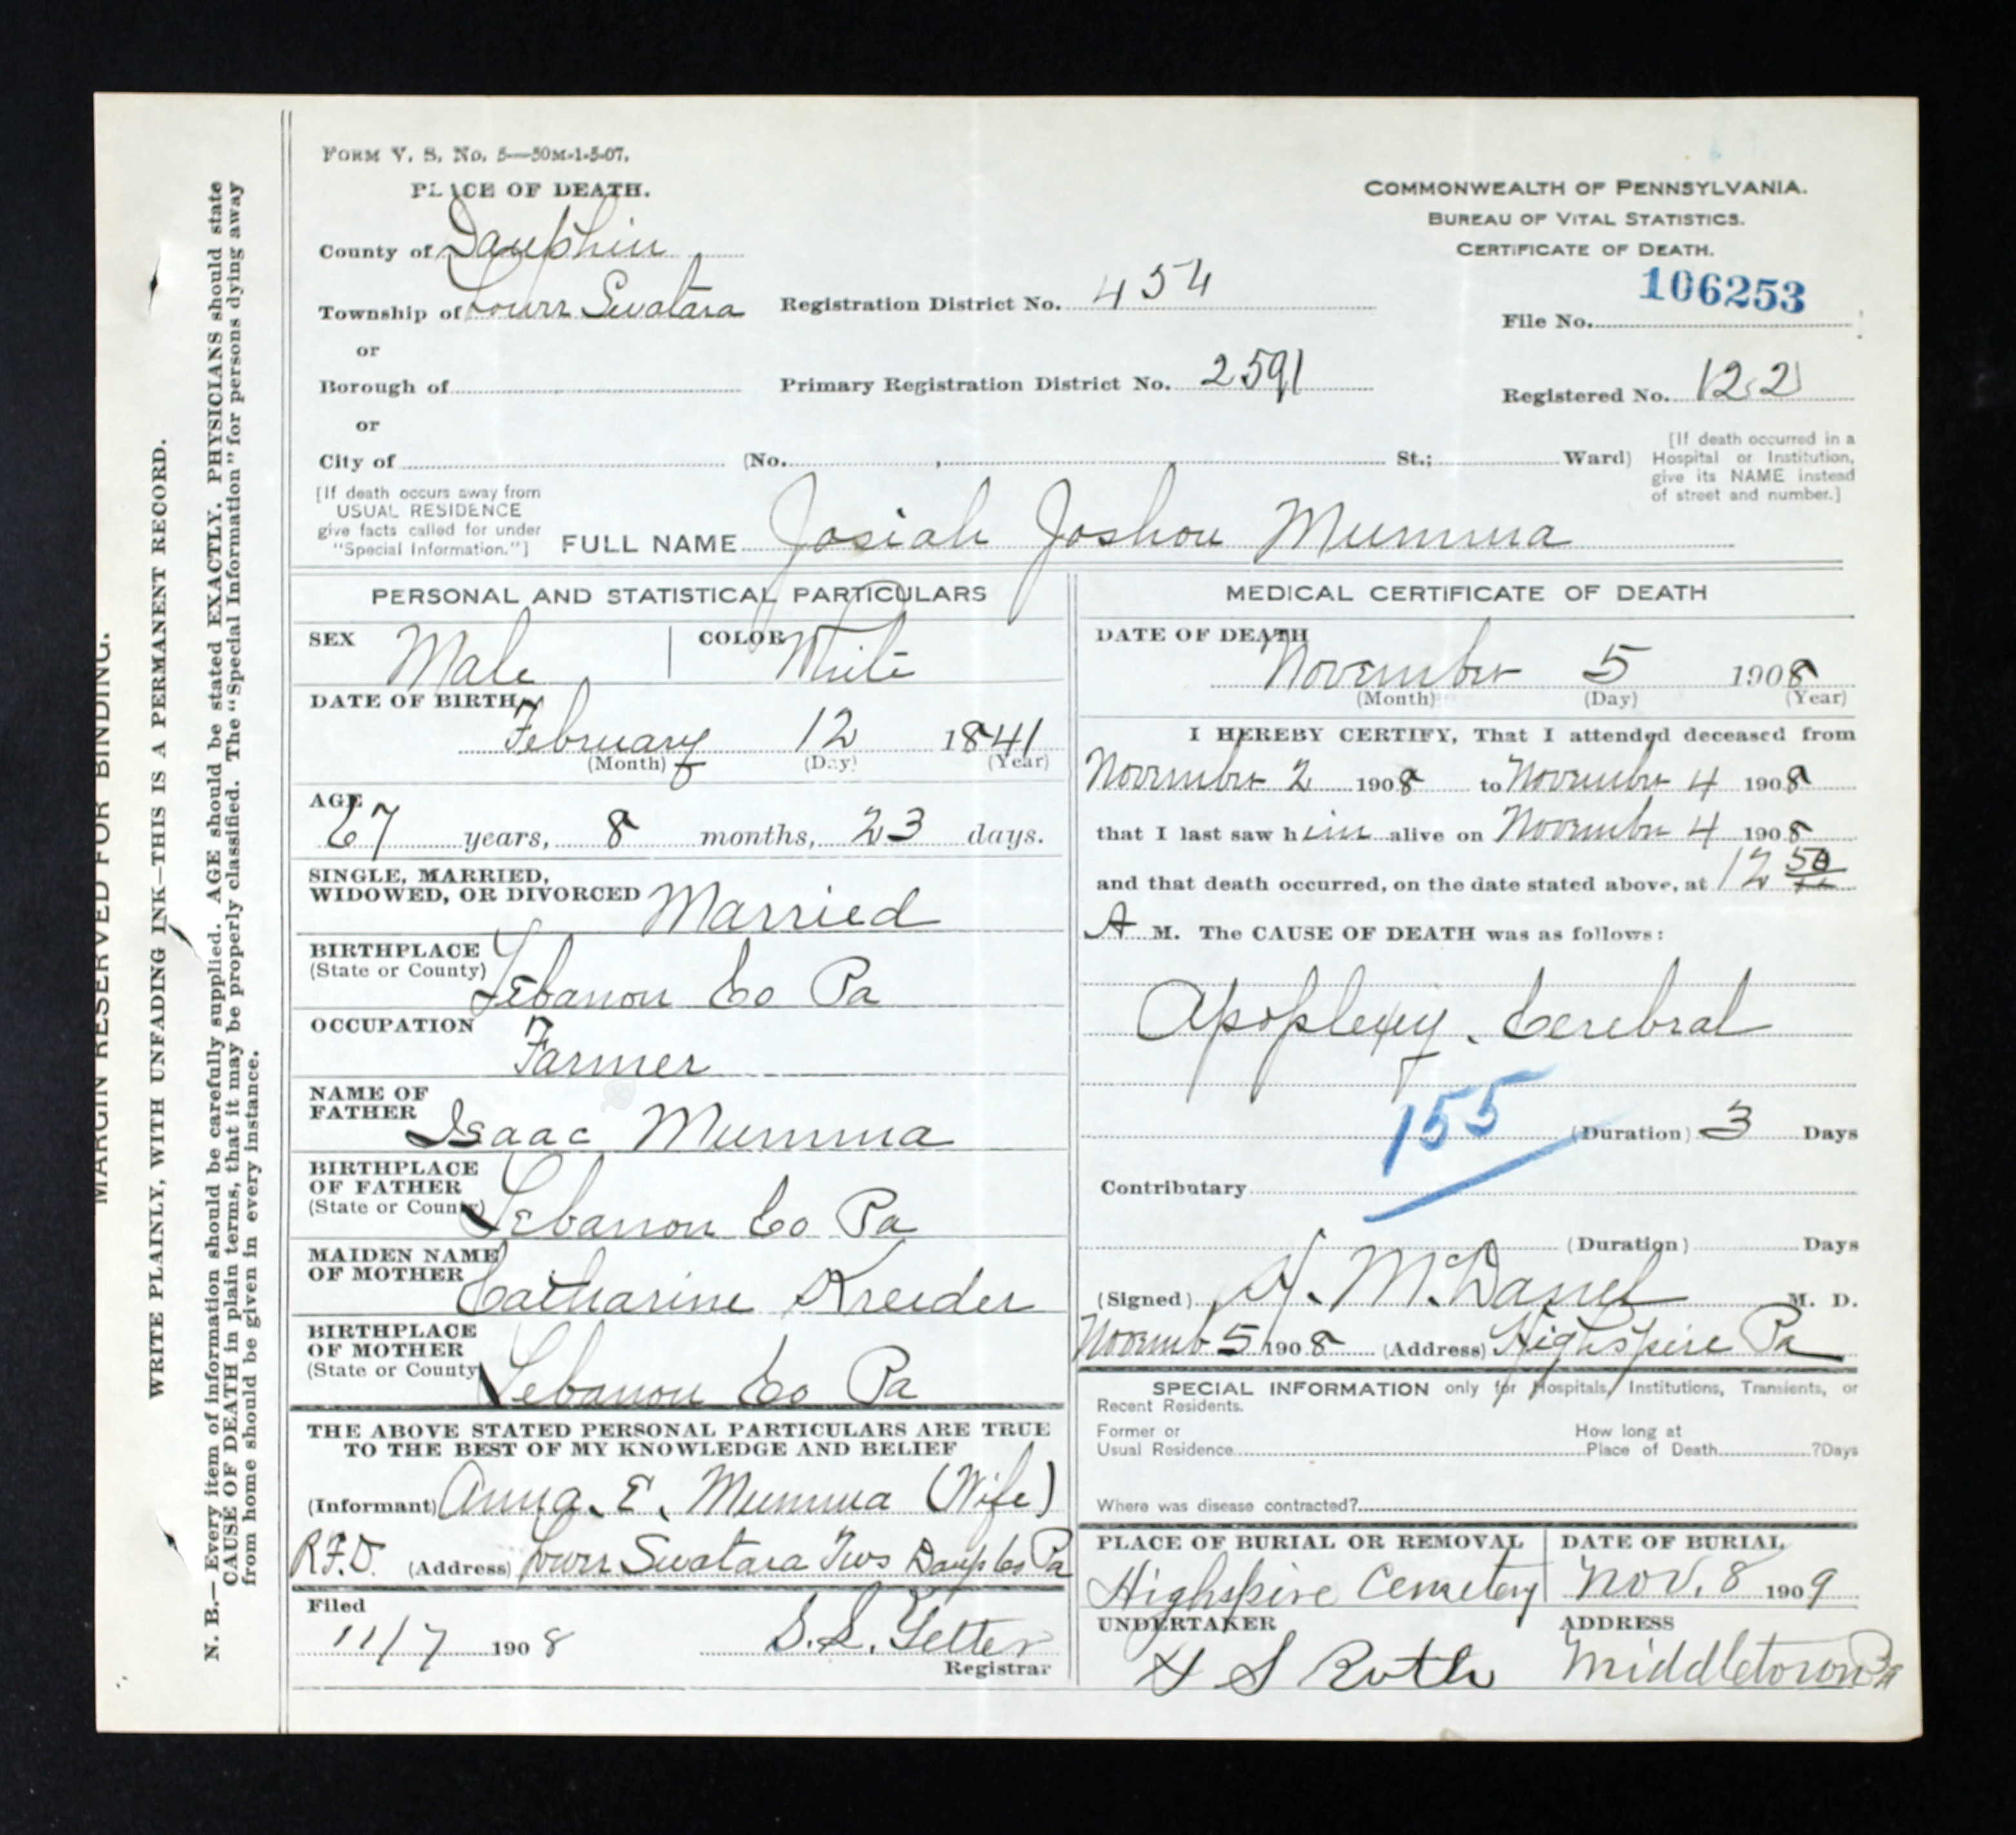 FORM V. S. No. 5—50M-1-5-07.
PLACE OF DEATH.
County of Dauphin
Township of Lower Swatara
or
Borough of
or
City of (No. , St.; Ward)
Registration District No. 454
Primary Registration District No. 2591
COMMONWEALTH OF PENNSYLVANIA.
BUREAU OF VITAL STATISTICS.
CERTIFICATE OF DEATH.
106253
File No.
Registered No. 122
[If death occurred in a
Hospital or Institution,
give its NAME instead
of street and number.]
[If death occurs away from
USUAL RESIDENCE
give facts called for under
"Special Information."]
FULL NAME Josiah Joshou Mumma
PERSONAL AND STATISTICAL PARTICULARS
SEX Male
COLOR White
DATE OF BIRTH
February 12 1841
(Month) (Day) (Year)
AGE
67 years, 8 months, 23 days.
SINGLE, MARRIED,
WIDOWED, OR DIVORCED Married
BIRTHPLACE
(State or County) Lebanon Co Pa
OCCUPATION
Farmer
NAME OF
FATHER Isaac Mumma
BIRTHPLACE
OF FATHER
(State or County) Lebanon Co Pa
MAIDEN NAME
OF MOTHER Catharine Kreider
BIRTHPLACE
OF MOTHER
(State or County) Lebanon Co Pa
THE ABOVE STATED PERSONAL PARTICULARS ARE TRUE
TO THE BEST OF MY KNOWLEDGE AND BELIEF
(Informant) Anna. E. Mumma (Wife)
R.F.D. (Address) Lower Swatara Twp Daup Co Pa
Filed
11/7 1908 S. S.
Registrar
MEDICAL CERTIFICATE OF DEATH
DATE OF DEATH
November 5 1908
(Month) (Day) (Year)
I HEREBY CERTIFY, That I attended deceased from
November 2 1908 to November 4 1908
that I last saw him alive on November 4 1908
and that death occurred, on the date stated above, at 12 50
A M. The CAUSE OF DEATH was as follows:
Apoplexy. Cerebral
155
(Duration) 3 Days
Contributary
(Duration) Days
(Signed) M. D.
Novemb 5 1908 (Address) Highspire Pa
SPECIAL INFORMATION only for Hospitals, Institutions, Transients, or
Recent Residents.
Former or
Usual Residence
How long at
Place of Death ?Days
Where was disease contracted?
PLACE OF BURIAL OR REMOVAL
Highspire Cemetery
DATE OF BURIAL
Nov. 8 1909
UNDERTAKER
H S Roth
ADDRESS
Middletown Pa
MARGIN RESERVED FOR BINDING.
WRITE PLAINLY, WITH UNFADING INK—THIS IS A PERMANENT RECORD.
N. B.—Every item of information should be carefully supplied. AGE should be stated EXACTLY. PHYSICIANS should state
CAUSE OF DEATH in plain terms, that it may be properly classified. The "Special Information" for persons dying away
from home should be given in every instance.